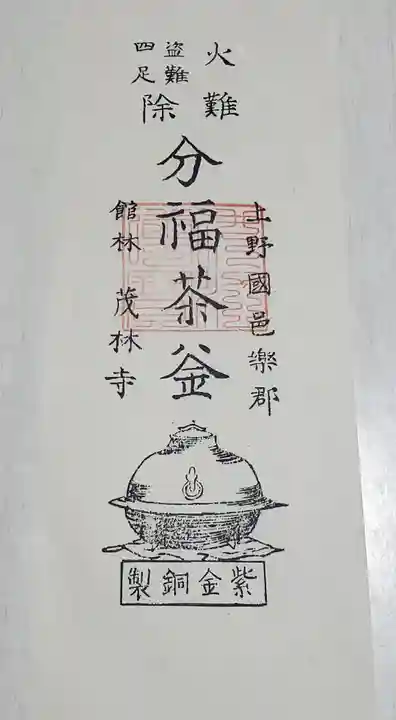 火難
盗難
四足
除
分福茶釜
上野國邑楽郡
館林 茂林寺
紫金銅製